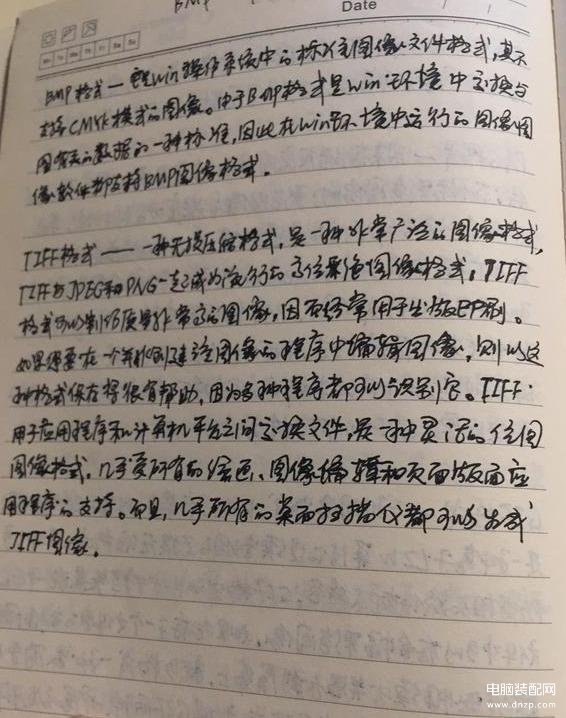 BMP
Date
Mo Tu We Th Fr Sa Su
BMP格式——它是Win操作系统中的标准图像文件格式,其不
支持CMYK模式的图像。由于BMP格式是Win环境中交换与
图有关的数据的一种标准,因此在Win环境中运行的图像图
像软件都支持BMP图像格式。
TIFF格式——一种无损压缩格式,是一种非常广泛的图像格式,
TIFF与JPEG和PNG一起成为流行的高位彩色图像格式。TIFF
格式可以制作质量非常高的图像,因而经常用于出版印刷。
如果你要在一个非创建该图像的程序中编辑图像,则以这
种格式保存将很有帮助,因为多种程序都可以识别它。TIFF
用于应用程序和计算机平台之间交换文件,是一种灵活的位图
图像格式,几乎受所有的绘色、图像编辑和页面版面应
用程序的支持。而且,几乎所有的桌面扫描仪都可以生成
TIFF图像。
电脑装配网
www.dnzp.com